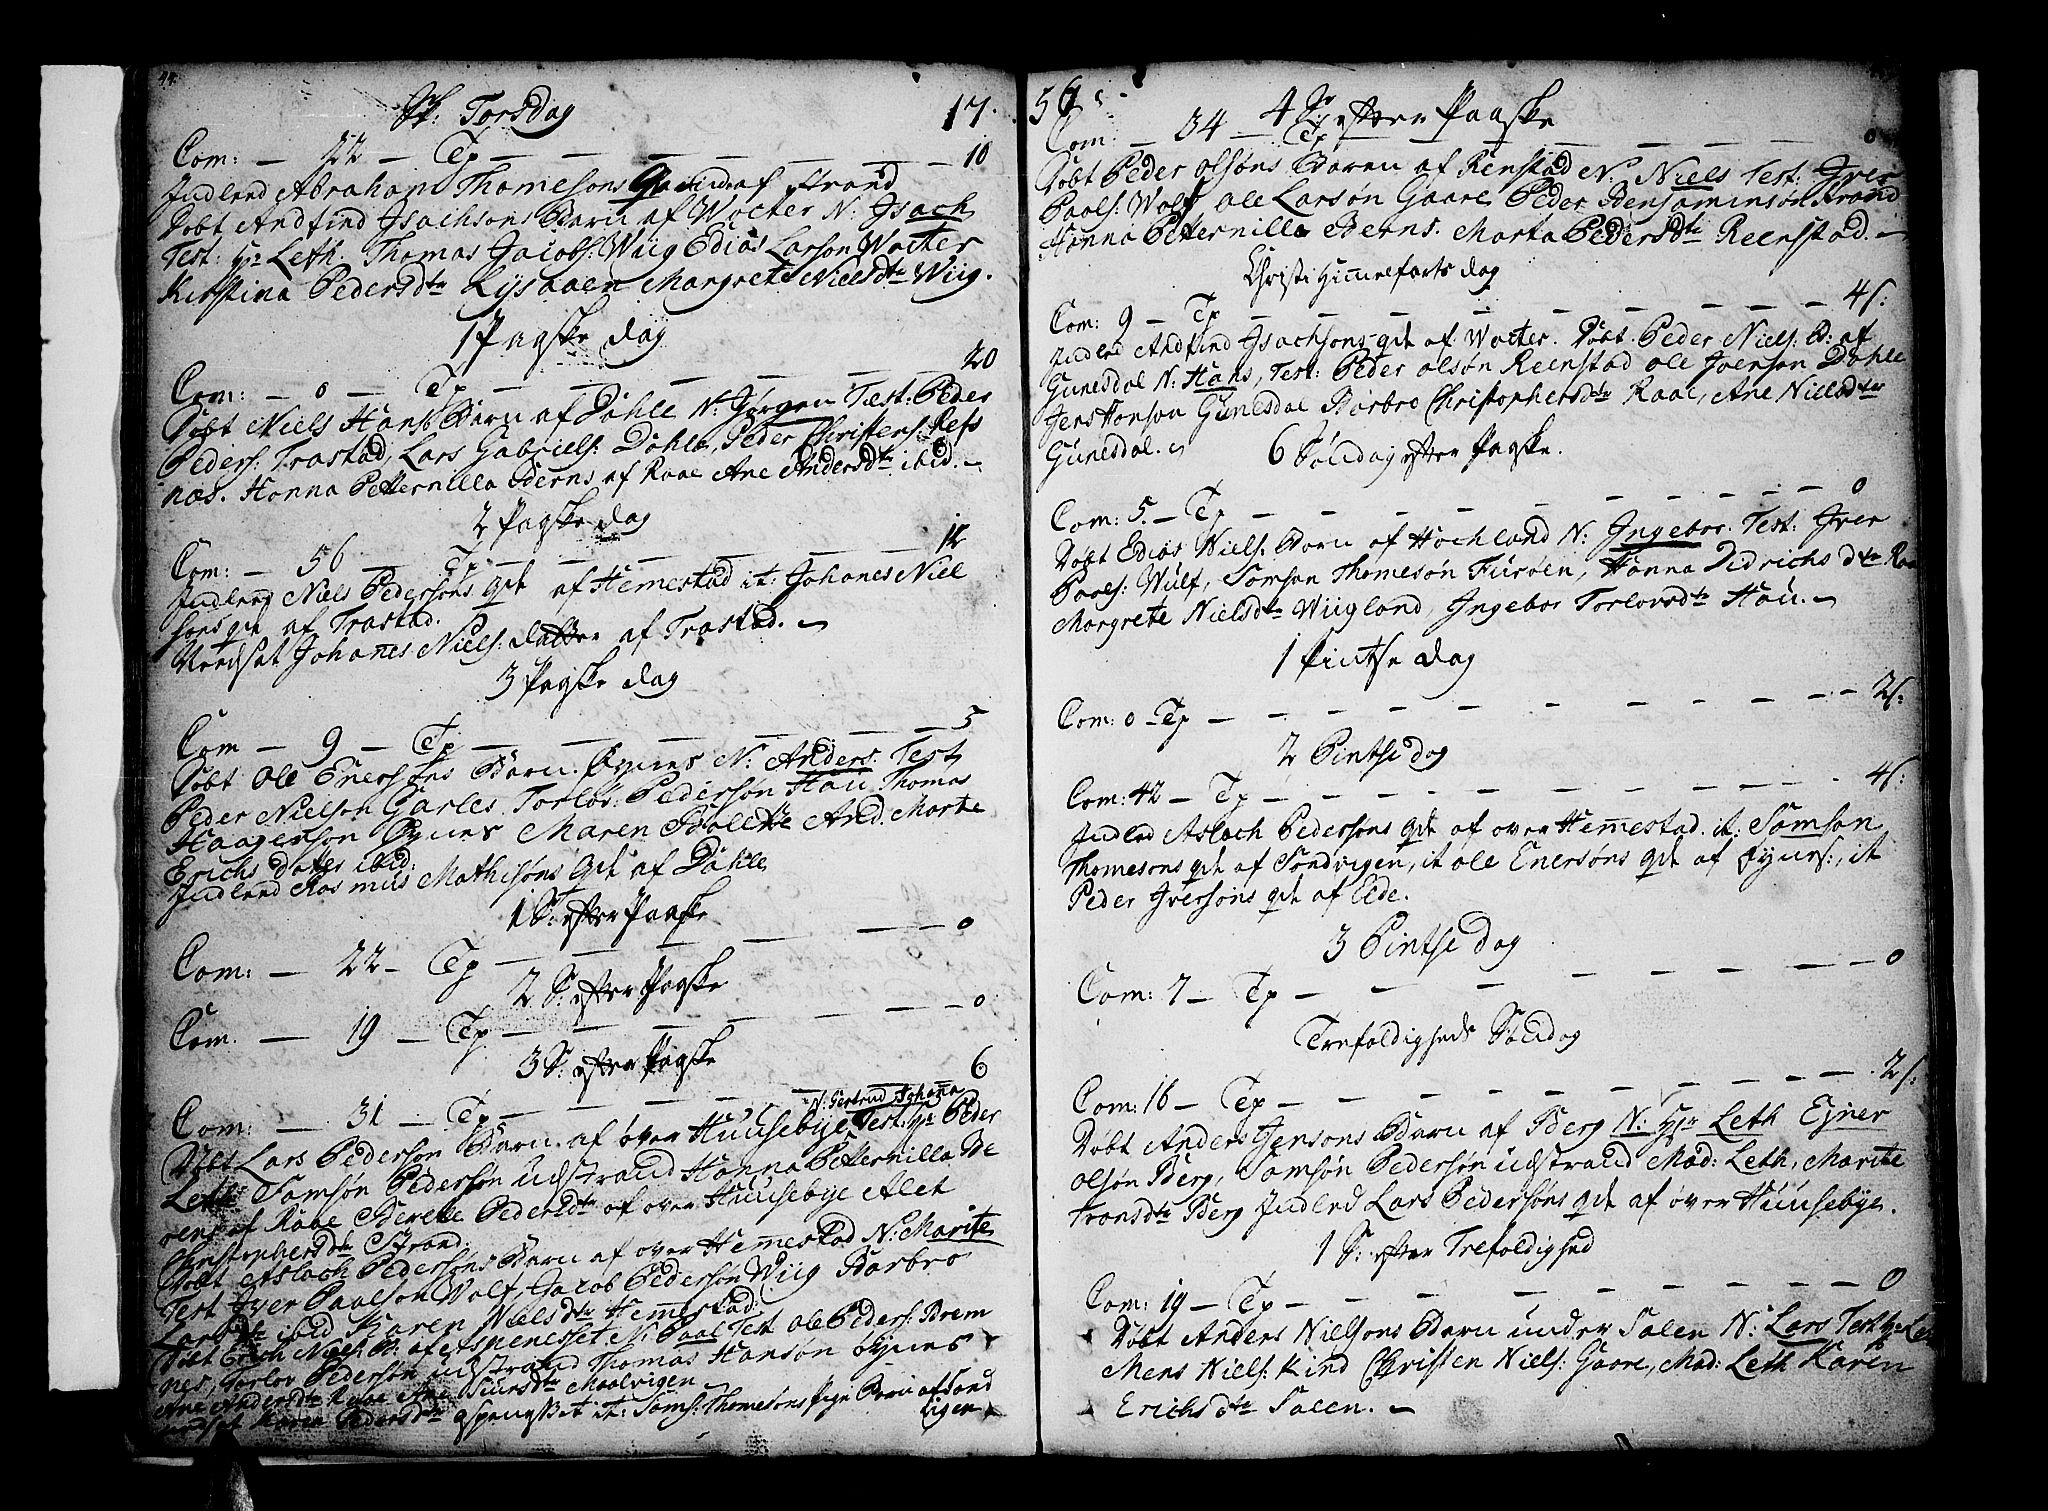 44.
Sk: Torsdag 17.
Com: — 22 — Tp — — — — — — — 10
Indled Abraham Thomesons Qvinde af Strand
Døbt Andfind Isachsons Barn af Wocter N: Isach
Test: Hr Leth. Thomas Jacobs: Wiig Edias Larson Wocter
Kirstina Pedersdtr Lysaaen Margrete Nielsdtr Wiig.
1 Paaske dag
20
Com: — 0 — Tp — — — — — —
Døbt Niels Hans Barn af Dahle N: Jørgen Test: Peder
Peders: Trastad, Lars Gabriels: Dahle, Peder Christens: Refs
næs. Hanna Petternilla Berns af Raae Ane Andersdtr ibid. —
2 Paaske dag
Com: — 56 — Tp — — — — — 12
Indlend Niels Pedersons qvt af Hemestad it: Johanes Niel
sons qvt af Trastad.
Nendsat Johanes Niels: datter af Trastad. —
3 Paaske dag
Com — 9 — Tp — — — — — — — 5
Døbt Ole Enersøns Barn Øynes N: Anders. Test
Peder Nielson Garles Torlov: Pedersøn Hau Thomas
Haagenson Øynes Maren Bolette And. Marte
Erichs dater ibid:
Indlend Rasmus Mathisøns qvt af Dahle
1 S: efter Paaske
Com: — 22 — Tp — — — — — 0
2 S: efter Paaske
Com. — 19 — Tp — — — — — — — 0
3 S: efter Paaske
6
Com: — 31 — Tp — — — — N: Gertrud Johanna
Døbt Lars Pederson Barn af over Huusebye, Test: Hr Peder
Leth Samsøn Pedersøn udstrand Hanna Petternilla Be
rens af Raae Berette Pedersdtr af over Huusebye Alet
Christophersdtr Strand:
Døbt Aslach Pedersøns Barn af over Hemestad N: Marite
Test Iver Paalson Wolf, Jacob Pedersøn Wiig Barbro
Larsdtr ibid Karen Nielsdtr Hemestad:
Døbt Erich Niels: B: af Aspenesset N: Paal Test Ole Peders: Brem
nes, Torlov Pedersøn udstrand Thomas Hansøn Øynes
Ane Andersdtr Raae Ane Siursdtr Maalvigen —
Karen Pedersdtr Espenesset it: Sams: Thomesøns Pige Barn af Sand
vigen
56
4 S: efter Paaske
Com: — 34 — Tp — — — — — 0
Døbt Peder Olsøns Barn af Renstad N: Niels Test: Iver
Paals: Wolf Ole Larsøn Gaare Peder Benjaminsøn Strand
Hanna Petternilla Berns. Marta Pedersdtr Reenstad. —
Christi Himmelfarts dag
Com: 9 — Tp — — — — — — 4 s:
Indled Andfind Isachsons qvt af Wocter. Døbt Peder Niels: B: af
Gunesdal N: Hans, Test: Peder Olsøn Reenstad Ole Iverson Dahle
Jens Hanson Gunesdal Barbro Christophersdtr Raae, Ane Nielsdtr
Gunesdal.
6 Søndag efter Paaske.
Com: 5. — Tp — — — — — — — 0
Døbt Edias Niels: Barn af Hochland N: Ingebor. Test: Iver
Paals: Wulf, Samson Thomesøn Furøen, Hanna Didrichs dtr Raa
Margrete Nielsdtr Wiigland, Ingebor Torlovsdtr Hau. —
1 Pintse dag
Com: 0 — Tp — — — — — — — — 2 s:
2 Pintse dag
Com: 42 — Tp — — — — — — — 4 s:
Indled Aslach Pedersons qvt af over Hemestad. it: Samson
Thomesons qvt af Sandvigen, it Ole Enersøns qvt af Øynes:, it
Peder Iversons qvt af Eide.
3 Pintse Dag
Com: 7 — Tp — — — — — — — 0
Trefoldigheds Søndag
Com: 16 — Tp — — — — — — — 2 s:
Døbt Anders Jensons Barn af Berg N: Hr Leth Ejner
Olsøn Berg, Samsøn Pedersøn udstrand Mad: Leth, Marite
Iransdtr Berg Indled Lars Pedersøns qvt af over Huusebye.
1 S: efter Trefoldighed
Com: 19 — Tp — — — — — — — 0
Døbt Anders Nielsøns Barn under Salen N: Lars Test Hr Le
Mens Niels: Kind Christen Niels: Gaare, Mad: Leth Karen
Erichs dtr Salen. —